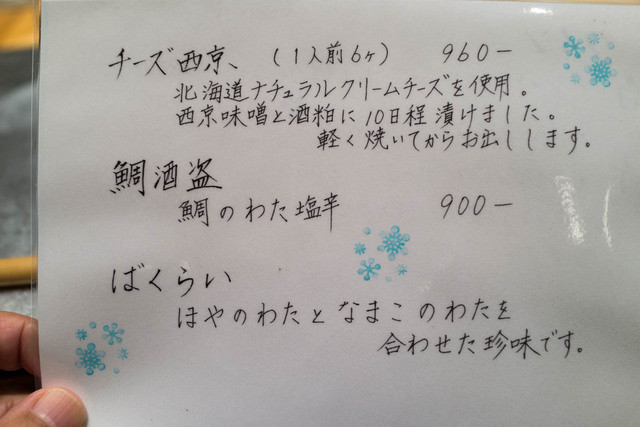 チーズ西京、（1人前6ヶ） 960－
北海道ナチュラルクリームチーズを使用。
西京味噌と酒粕に10日程漬けました。
軽く焼いてからお出しします。
鯛酒盗
鯛のわた塩辛 900－
ばくらい
ほやのわたとなまこのわたを
合わせた珍味です。